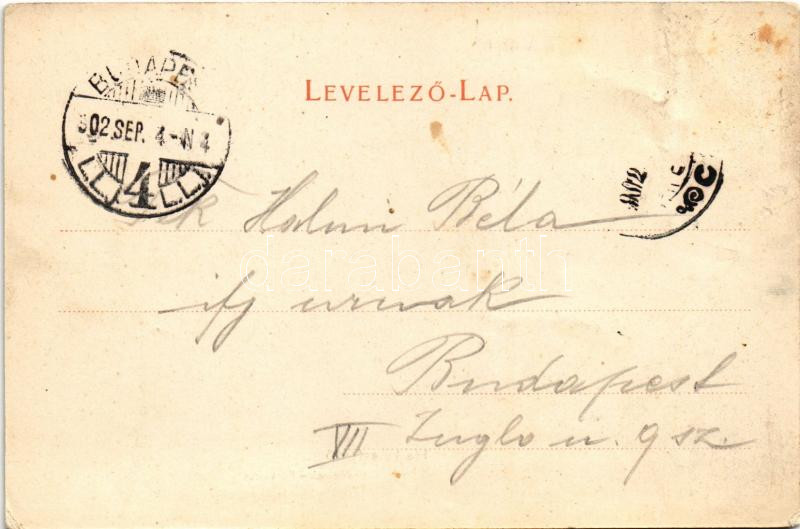 LEVELEZŐ-LAP.
BUDAPE
902 SEP. 4-N 4
4
Tek Halun Béla
ifj urnak
Budapest
VII Zuglo u. 9 sz.
darabanth